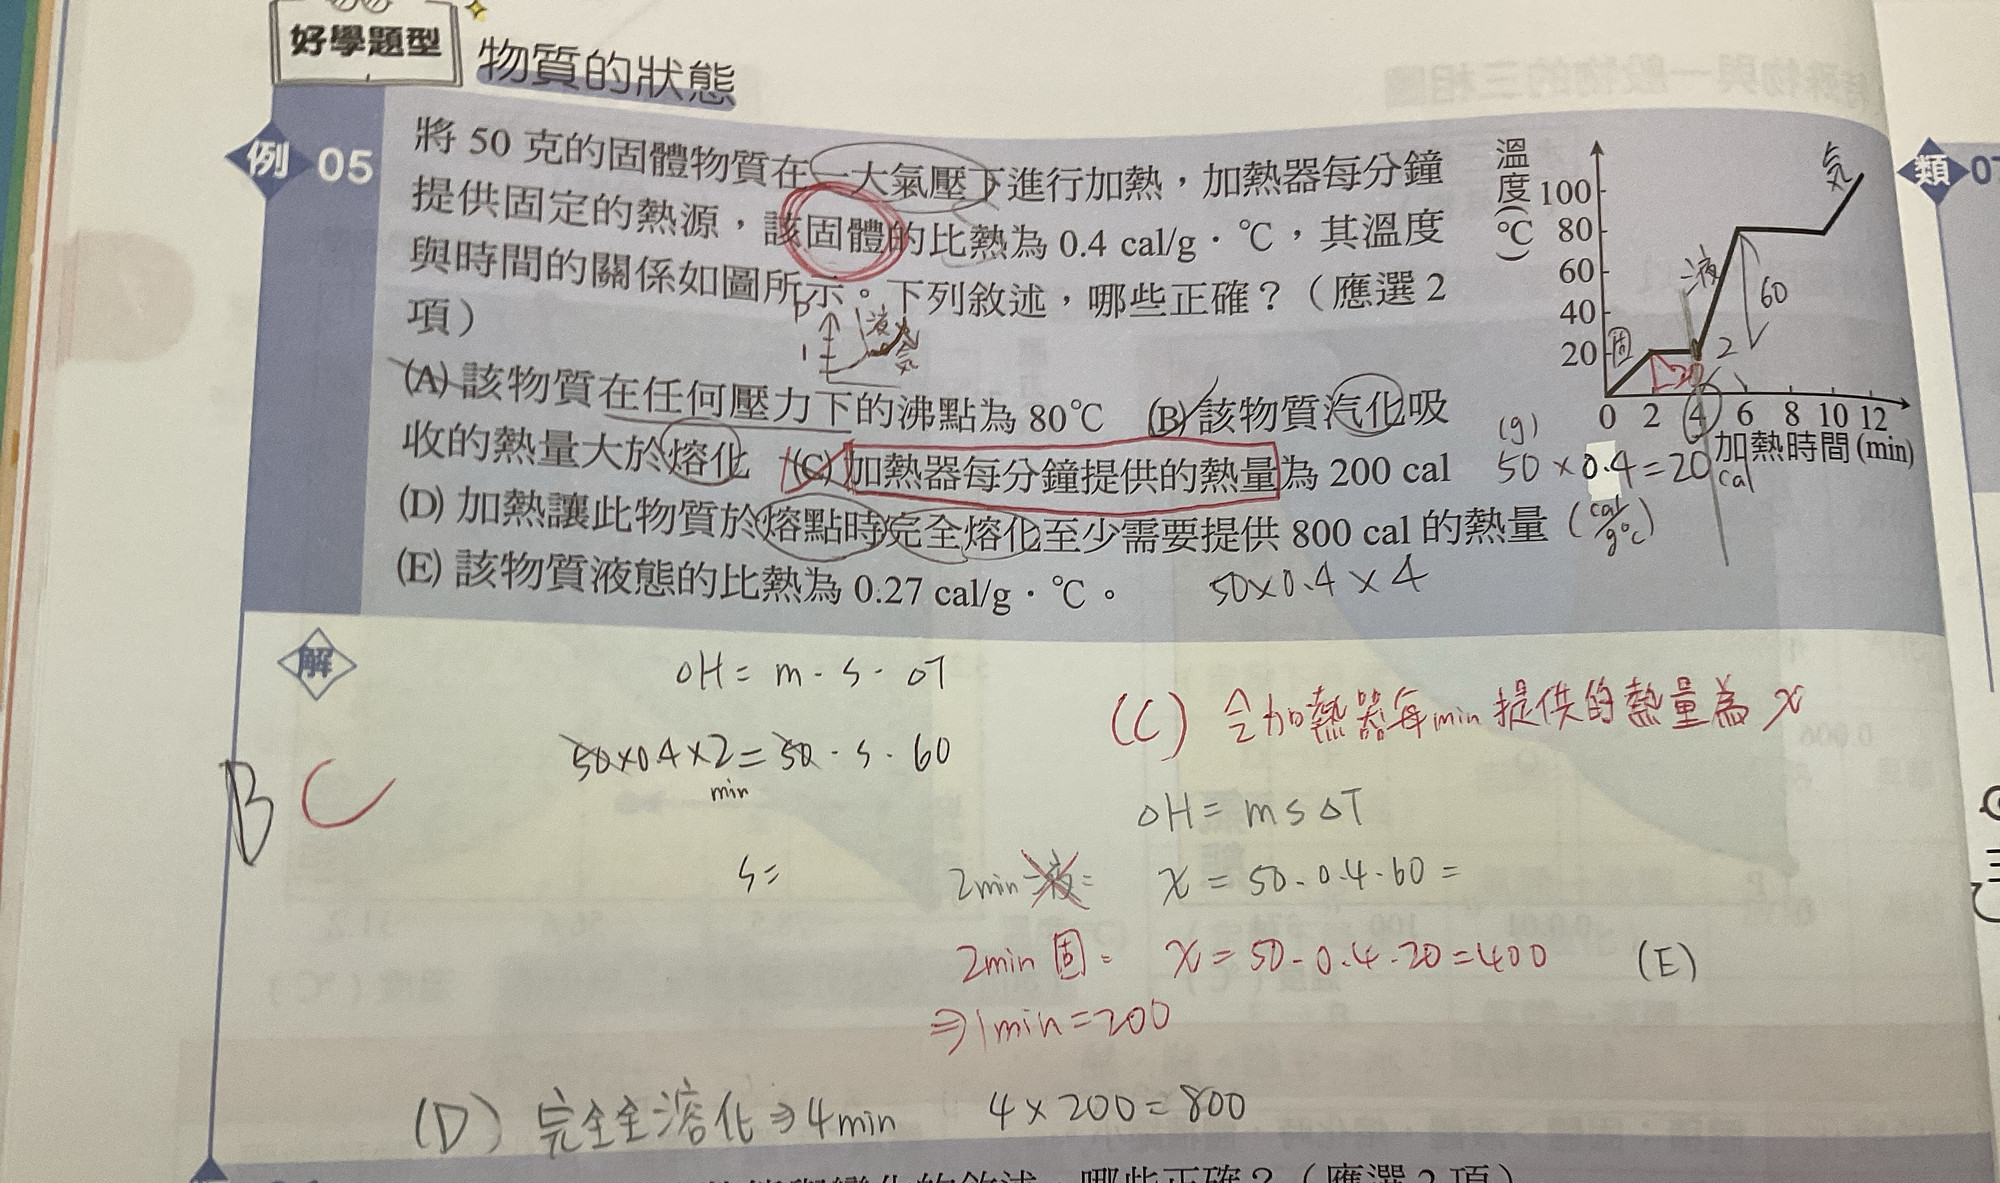 好學題型
物質的狀態
例 05
將 50 克的固體物質在一大氣壓下進行加熱，加熱器每分鐘
提供固定的熱源，該固體的比熱為 0.4 cal/g．℃，其溫度
與時間的關係如圖所示。下列敘述，哪些正確？（應選 2
項）
(A) 該物質在任何壓力下的沸點為 80℃ (B) 該物質汽化吸
收的熱量大於熔化 (C) 加熱器每分鐘提供的熱量為 200 cal
(D) 加熱讓此物質於熔點時完全熔化至少需要提供 800 cal 的熱量
(E) 該物質液態的比熱為 0.27 cal/g．℃。
P
1
液
気
溫度(℃)
100
80
60
40
20
0 2 4 6 8 10 12
加熱時間(min)
固
液
気
60
20
2
(g)
50 × 0.4 = 20
cal
(cal/g°C)
50×0.4×4
類 07
解
△H = m · s · △T
50×0.4×2 = 50 · s · 60
min
s =
B C
(C) 令加熱器每min提供的熱量為 x
△H = m s △T
2min 液 = x = 50 · 0.4 · 60 =
2min 固 = x = 50 · 0.4 · 20 = 400
(E)
⇒ 1min = 200
(D) 完全全溶化 ⇒ 4min 4 × 200 = 800
哪些正確？（應選 2 項）